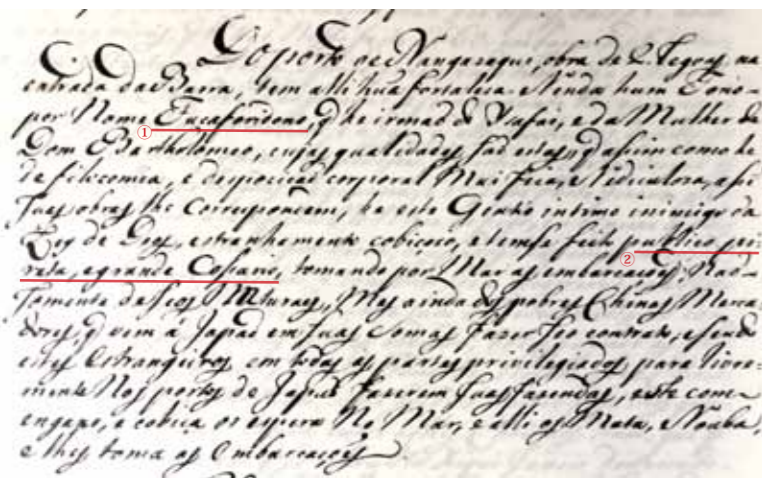 Do porto de Nangasaqui, obra de 2. legoas, na
entrada da Barra, tem alli hũa fortaleza
por Nome Fucaforidono, q̃ he irmaõ de Vafai, e da Mulher de
Dom Bartholomeo, cujas qualidades saõ estas, q̃ assim como he
corporal Mui feia, e ridiculosa, assi
suas obras lhe Correspondem, he este Gentio intimo inimigo da
Ley de Deos, estranhamente cobiçoso, e temse feito publico pi-
rata, e grande Cossario, tomando por Mar as embarcações, Naõ
somente de seos Naturaes, Mas ainda dos pobres Chinas Merca-
dores, q̃ vem á Japaõ em suas Somas fazer seo contrato, e sendo
estes Estrangeiros em todas as partes privilegiados para livre-
mente Nos portos de Japaõ fazerem suas fasendas, este com
engano, e cobiça os espera No Mar, e alli os Mata, e Rouba,
e lhes toma as Embarcações.
①
②